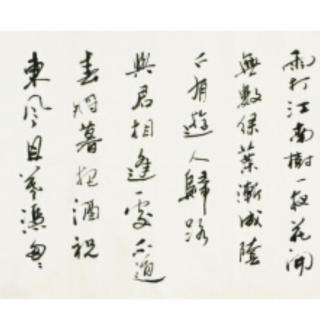 雨打江南樹一夜花開
無數綠葉漸成陰
下有遊人歸路
與君相逢處不道
春將暮把酒祝
東風且莫恁匆匆